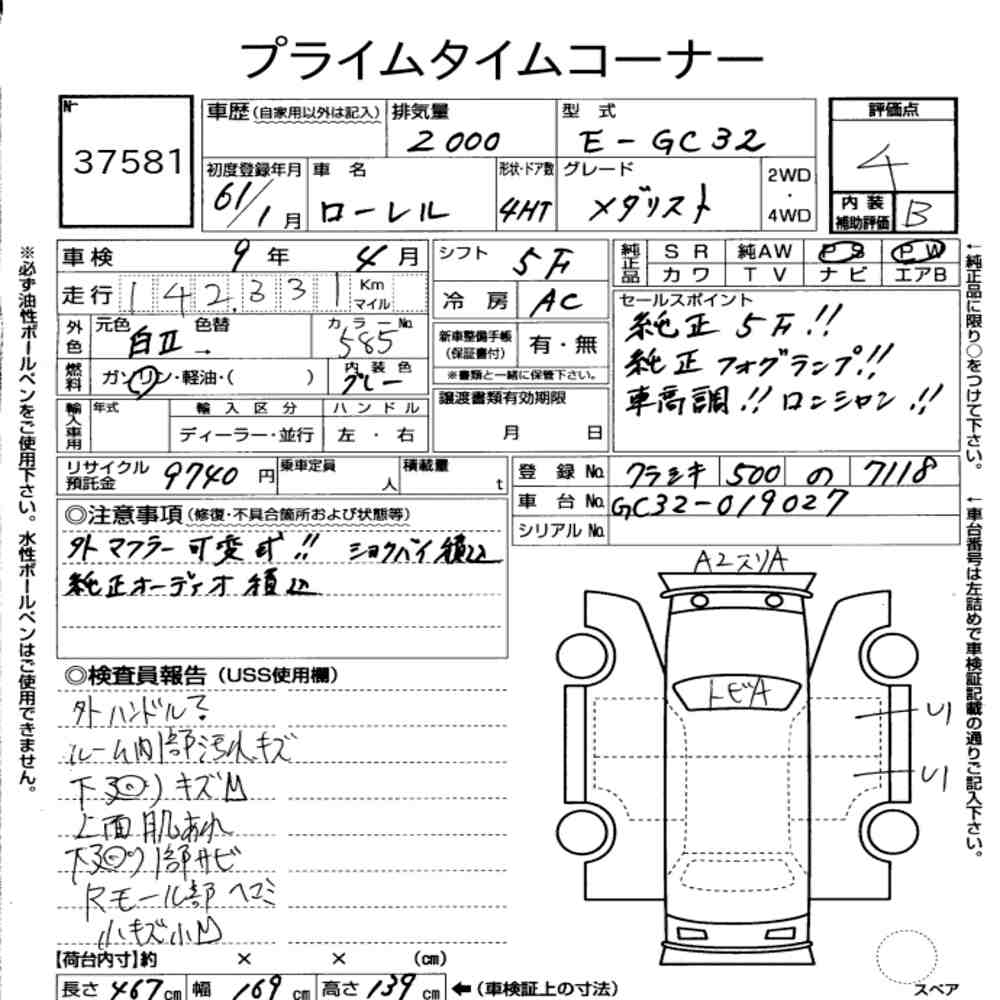 プライムタイムコーナー
No.
37581
車歴(自家用以外は記入)
排気量
2000
型 式
E-GC32
評価点
4
内装補助評価
B
初度登録年月
61/1月
車 名
ローレル
形状・ドア数
4HT
グレード
メダリスト
2WD
・
4WD
車検 9年 4月
走行 142,331 Km マイル
シフト 5F
冷房 AC
純正品
SR 純AW PS PW
カワ TV ナビ エアB
セールスポイント
純正 5F!!
純正フォグランプ!!
車高調!! ロンシャン!!
外色
元色 白II
色替 →
カラーNo. 585
燃料
ガソリン・軽油・( )
内装色 グレー
新車整備手帳
(保証書付)
有・無
※書類と一緒に保管下さい。
譲渡書類有効期限
月 日
輸入車用
年式
輸入区分
ディーラー・並行
ハンドル
左・右
リサイクル預託金 9740円
乗車定員 人
積載量 t
登録No. クラシキ 500 の 7118
車台No. GC32-019027
シリアルNo.
◎注意事項(修復・不具合箇所および状態等)
外マフラー可変式!! ショウバイ積込
純正オーディオ積込
◎検査員報告(USS使用欄)
外ハンドル?
ルーム内部汚れキズ
下回り キズM
上面肌あれ
下回り1部サビ
Rモール部ヘコミ
小キズ小M
A2スリA
トビA
U1
U1
スペア
【荷台内寸】約 × × (cm)
長さ 467cm 幅 169cm 高さ 139cm ←(車検証上の寸法)
※必ず油性ボールペンをご使用下さい。水性ボールペンはご使用できません。
←純正品に限り○をつけて下さい。
←車台番号は左詰めで車検証記載の通りご記入下さい。